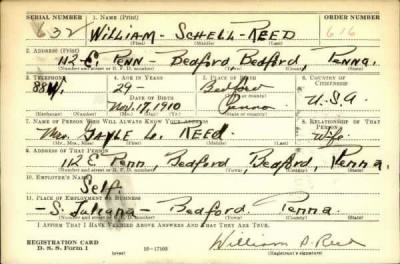 SERIAL NUMBER
1. NAME (Print)
ORDER NUMBER
632
WILLIAM - SCHELL - REED
616
(First) (Middle) (Last)
2. ADDRESS (Print)
112 E. Penn - Bedford, Bedford, Penna.
(Number and street or R. F. D. number) (Town) (County) (State)
3. TELEPHONE
4. AGE IN YEARS
5. PLACE OF BIRTH
6. COUNTRY OF CITIZENSHIP
29 -
Bedford
DATE OF BIRTH
(Town or county)
U.S.A
Nov. 17, 1910
Penna
(Mo.) (Day) (Yr.)
(State or country)
7. NAME OF PERSON WHO WILL ALWAYS KNOW YOUR ADDRESS
8. RELATIONSHIP OF THAT PERSON
Mrs. Gayle L. REED.
Wife.
(Mr., Mrs., Miss) (First) (Middle) (Last)
9. ADDRESS OF THAT PERSON
112 E Penn, Bedford, Bedford, Penna.
(Number and street or R. F. D. number) (Town) (County) (State)
10. EMPLOYER'S NAME
Self.
11. PLACE OF EMPLOYMENT OR BUSINESS
- S. Juliana - Bedford. Penna.
(Number and street or R. F. D. number) (Town) (County) (State)
I AFFIRM THAT I HAVE VERIFIED ABOVE ANSWERS AND THAT THEY ARE TRUE.
REGISTRATION CARD
D. S. S. Form 1
(over)
16-17105
William S. Reed
(Registrant's signature)